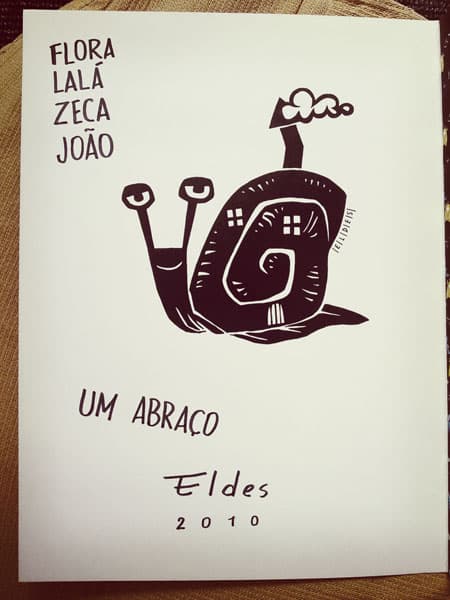 FLORA
LALÁ
ZECA
JOÃO
|E|L|D|E|S|
UM ABRAÇO
Eldes
2010